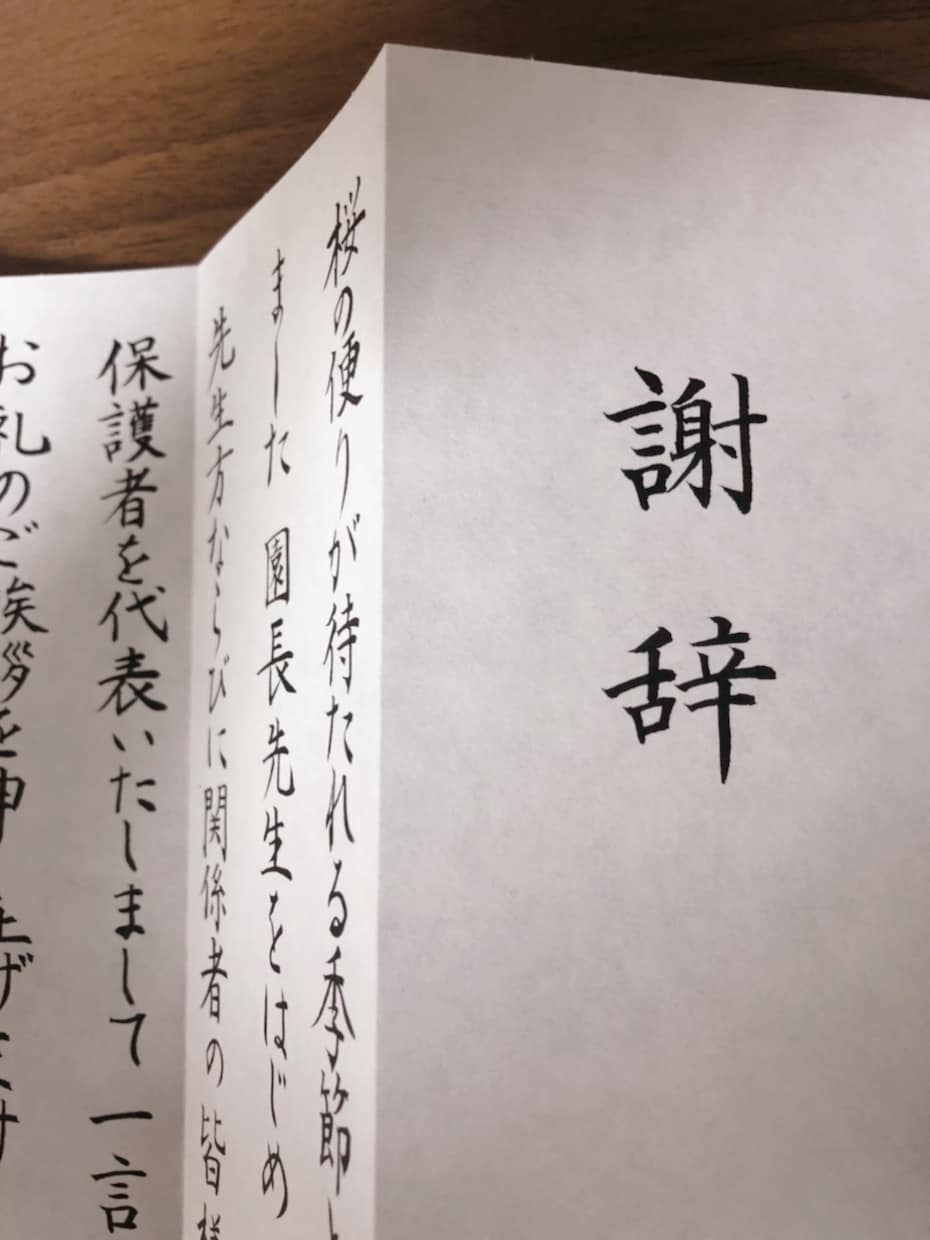 謝辞
桜の便りが待たれる季節と
ました 園長先生をはじめ
先生方ならびに関係者の皆様
保護者を代表いたしまして 一言
お礼のご挨拶を申し上げ